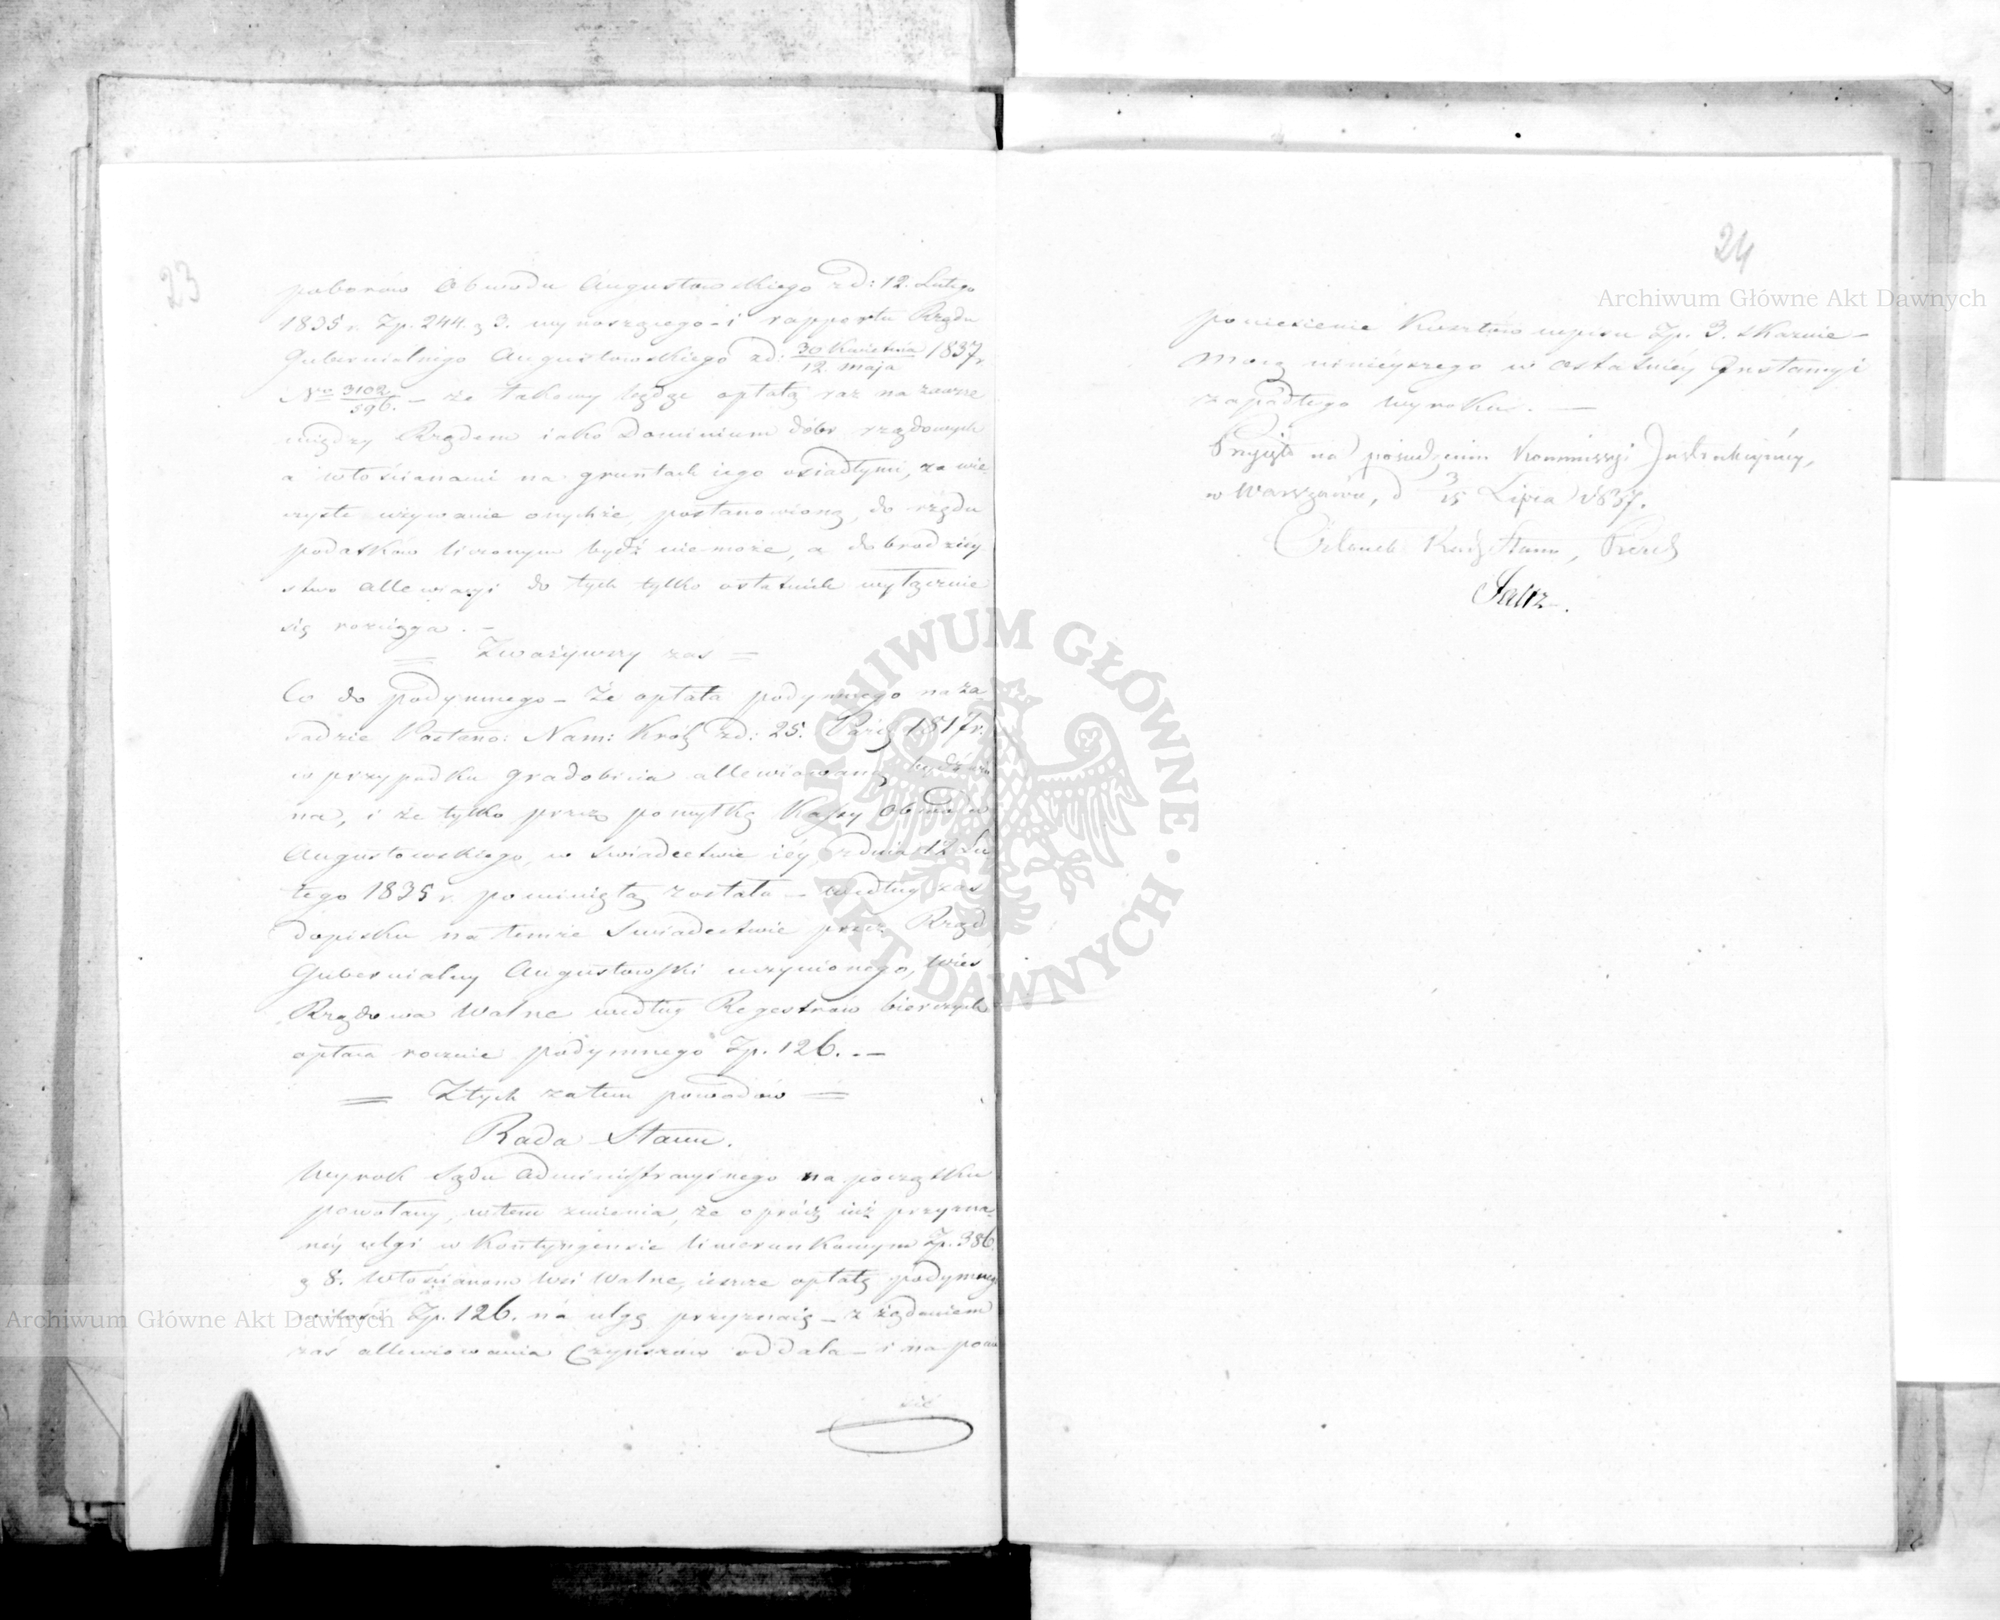 23
poborów Obwodu Augustowskiego z d: 12. Lutego
1835 r. Zp. 244. g 3. wynoszącego – i rapportu Rządu
Gubernialnego Augustowskiego z d: 30 Kwietnia / 12 Maja 1837 r.
No 3102/596. – że takowy będąc opłatą raz na zawsze
między Rządem iako Dominium dóbr rządowych
a włościanami na gruntach iego osiadłymi, za wie-
czyste używanie onychże postanowioną, do rzędu
podatków liczonym bydź niemoże, a dobrodziey
stwo allewiacyi do tych tylko ostatnich wyłącznie
się rozciąga. –
= Zważywszy zaś =
Co do podymnego – Że opłata podymnego na za
sadzie Postano: Nam: Król: z d: 25. Paźd: 1817 r.
w przypadku gradobicia allewiowaną bydź win
na, i że tylko przez pomyłkę Kassy Obwodu
Augustowskiego, w świadectwie iéy z dnia 12 Lu
tego 1835 r. pominiętą została – według zaś
dopisku na temże świadectwie przez Rząd
Gubernialny Augustowski uczynionego, wieś
Rządowa Walne według Regestrów bierczych
opłaca rocznie podymnego Zp. 126. –
= Z tych zatem powodów =
Rada Stanu.
Wyrok Sądu Administracyinego na początku
powołany, w tem zmienia, że oprócz iuż przyzna-
néy ulgi w Kontyngensie liwerunkowym Zp. 386
g 8. Włościanom Wsi Walne, ieszcze opłatę podymnego
w ilości Zp. 126. na ulgę przyznaie – z żądaniem
zaś allewiowania Czynszów oddala – i na ponie
sie
24
poniesienie Kosztów wpisu Zp. 3. skazuie –
Mocą ninieyszego w ostatniéy Instancyi
zapadłego Wyroku. –
Przyięto na posiedzeniu Kommissyi Instrukcyinéy,
w Warszawie, d 3/15 Lipca 1837.
Członek Rady Stanu, Prezes
Archiwum Główne Akt Dawnych
Archiwum Główne Akt Dawnych
ARCHIWUM GŁÓWNE · AKT DAWNYCH ·